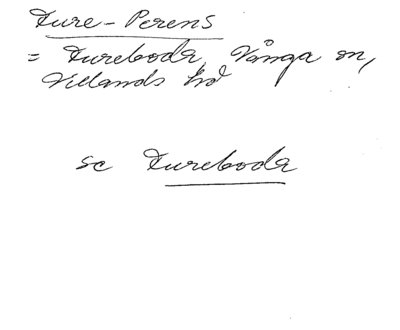 Ture-Perens
= Tureboda, Vånga sn,
Villands hd
se Tureboda